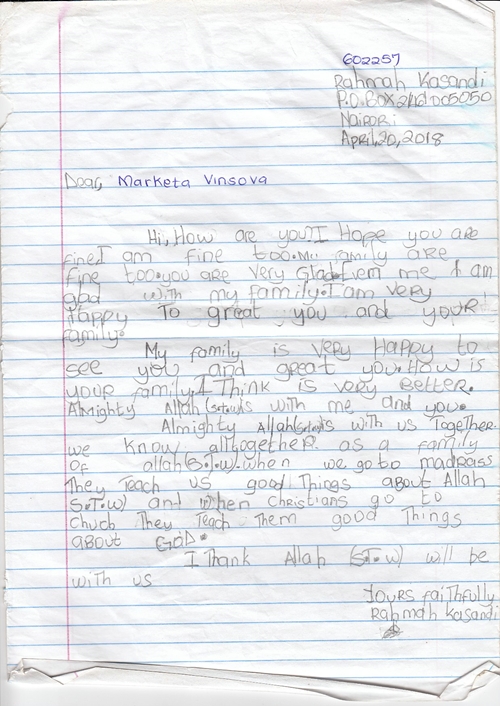 602257
Rahmah Kasandi
P.O.BOX
Nairori
April,20,2018
Dear, Marketa Vinsova
Hi, How are you?I Hope you are
fine.I am fine too.my family are
fine too.you are very Glad me I am
gad with my family.I am very
Happy To great you and your
family.
My family is very Happy to
see you and great you.How is
your family.I Think is very Better.
Almighty Allah(S.t.w)is with me and you.
Almighty Allah(S.t.w)is with us Together.
we know alltogether as a family
of allah(S.T.w).when we go to madrass
They Teach us good Things about Allah
S.T.w) and when christians go to
chuch They Teach Them good Things
about GOD.
I Thank Allah (S.T.w) will be
with us
Yours faithfully
Rahmah Kasandi